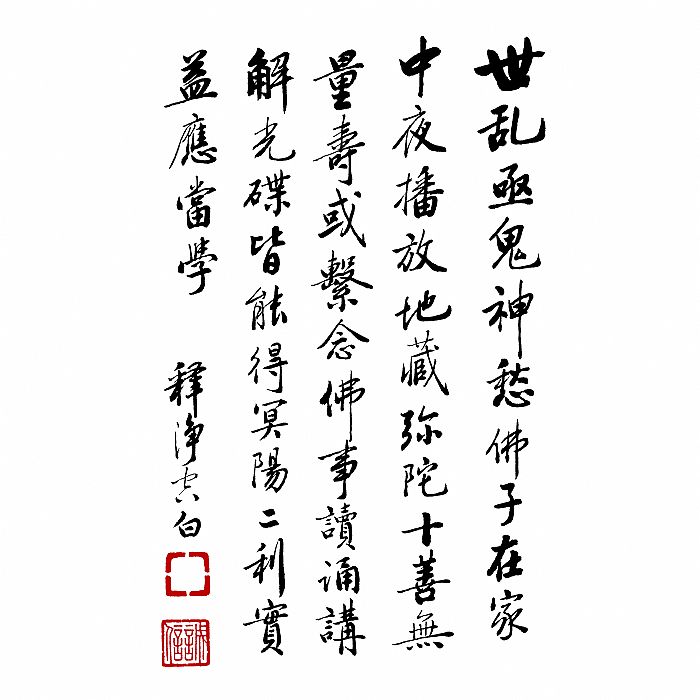 世乱亟鬼神愁佛子在家
中夜播放地藏弥陀十善無
量壽或繫念佛事讀誦講
解光碟皆能得冥陽二利實
益應當學
釋淨空白